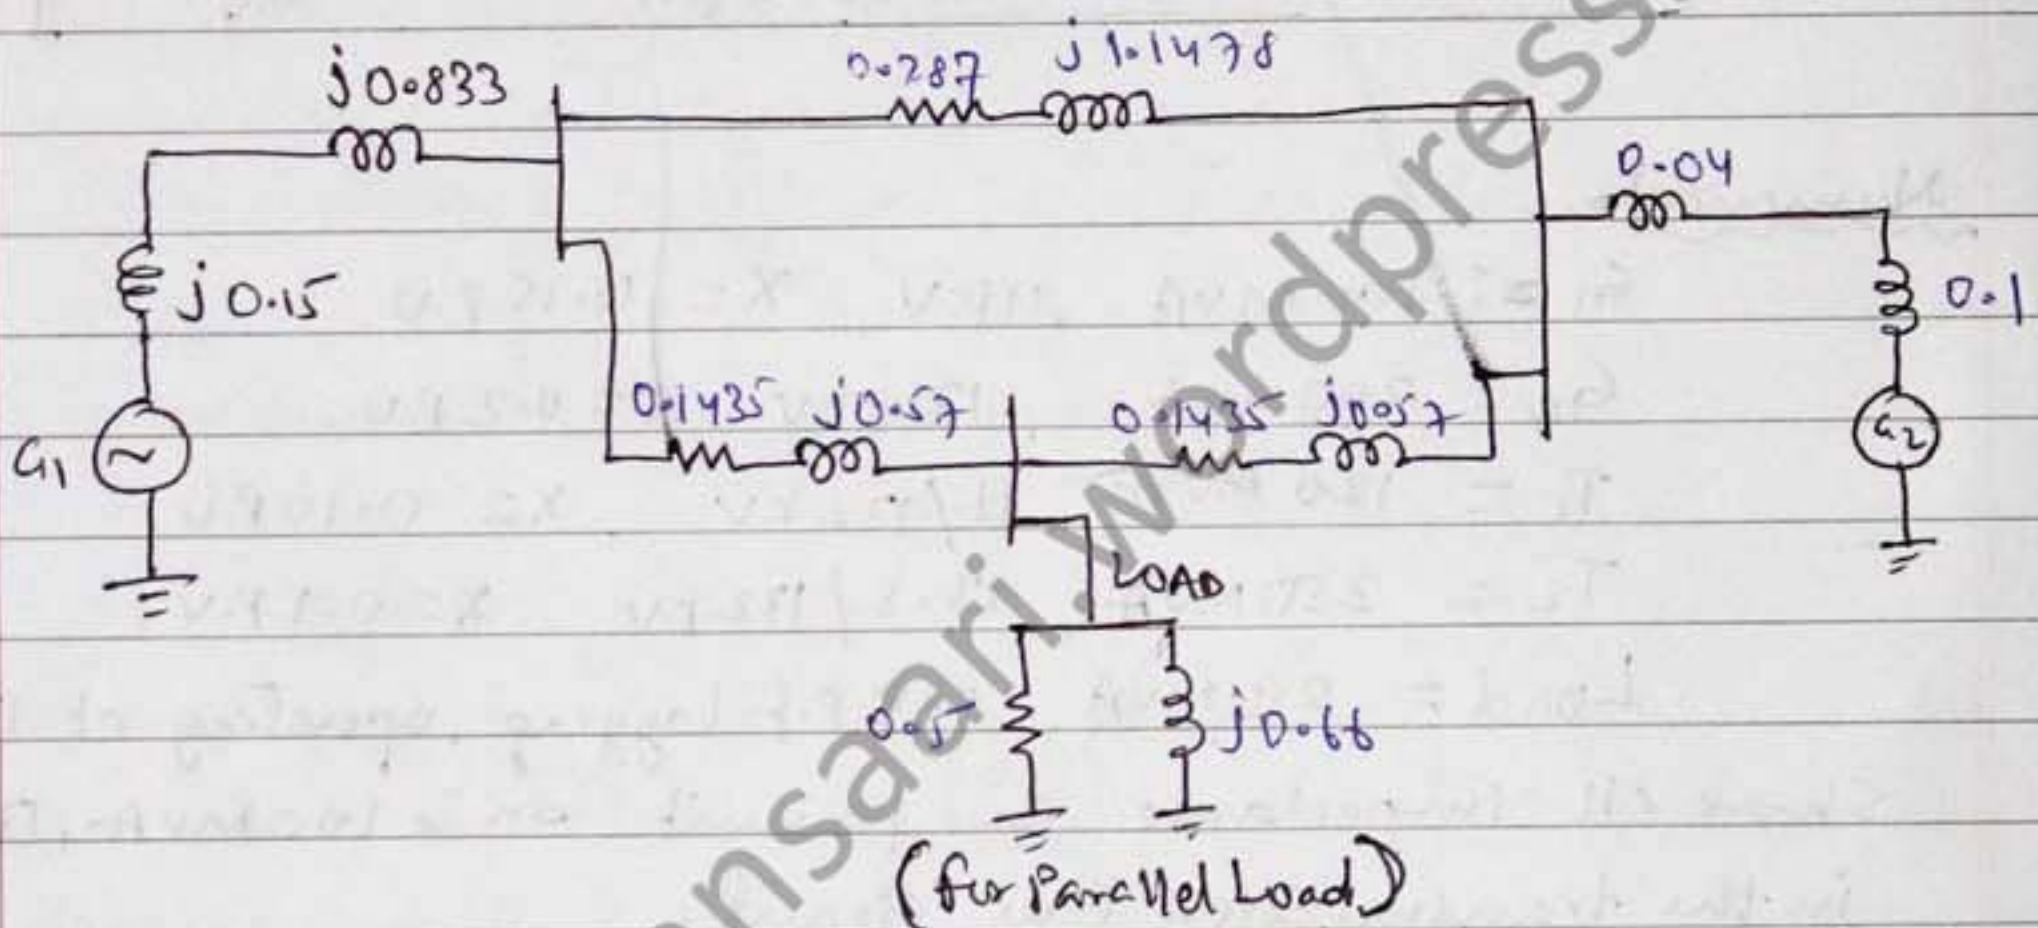 j0.833
0.287 j1.1478
0.04
j0.15
0.1
0.1435 j0.57
0.1435 j0.57
G1
G2
LOAD
0.5
j0.66
(for Parallel Load)
nsaari.wordpress.